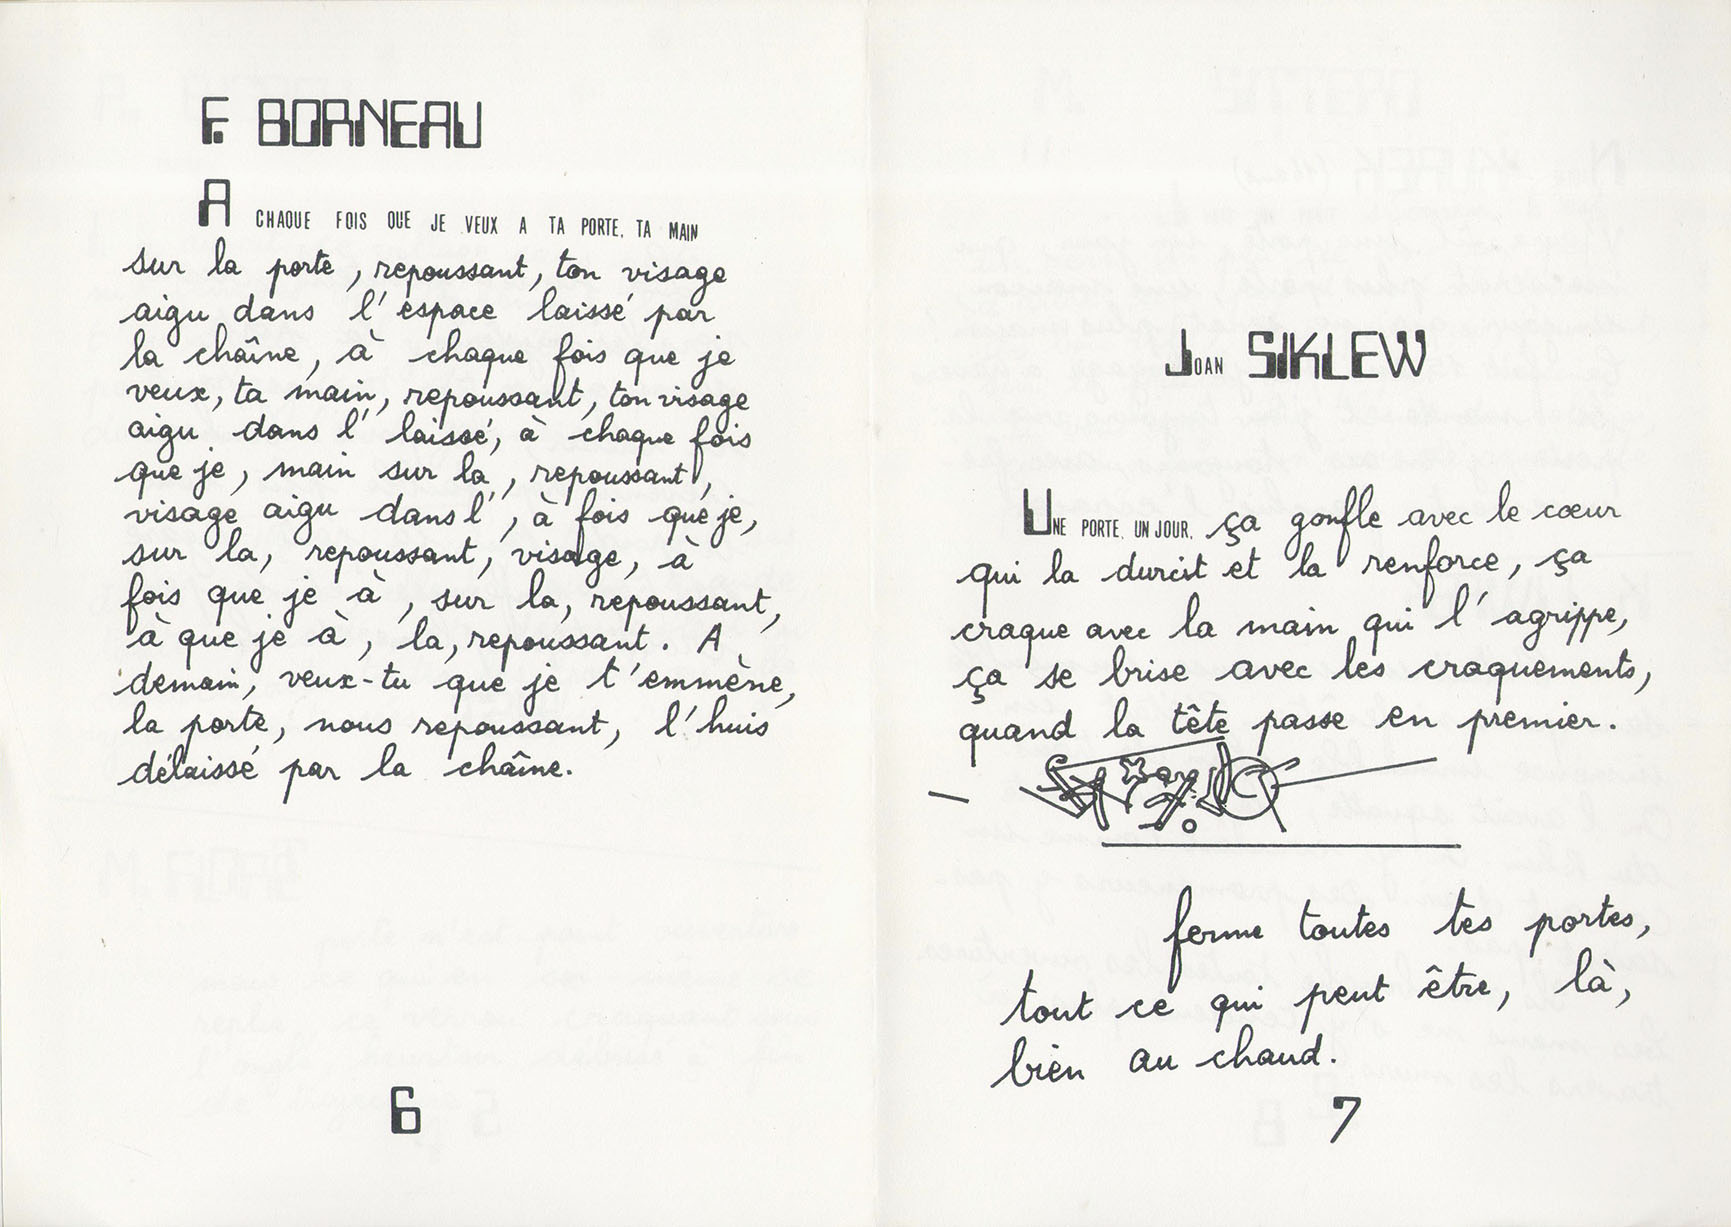 F. BORNEAU
A CHAQUE FOIS QUE JE VEUX A TA PORTE, TA MAIN
sur la porte, repoussant, ton visage
aigu dans l'espace laissé par
la chaîne, à chaque fois que je
veux, ta main, repoussant, ton visage
aigu dans l' laissé, à chaque fois
que je, main sur la, repoussant,
visage aigu dans l', à fois que je,
sur la, repoussant, visage, à
fois que je à, sur la, repoussant,
à que je à, la, repoussant. A
demain, veux-tu que je t'emmène,
la porte, nous repoussant, l'huis
délaissé par la chaîne.
6
JOAN SIKLEW
UNE PORTE, UN JOUR, ça gonfle avec le cœur
qui la durcit et la renforce, ça
craque avec la main qui l'agrippe,
ça se brise avec les craquements,
quand la tête passe en premier.
ferme toutes tes portes,
tout ce qui peut être, là,
bien au chaud.
7